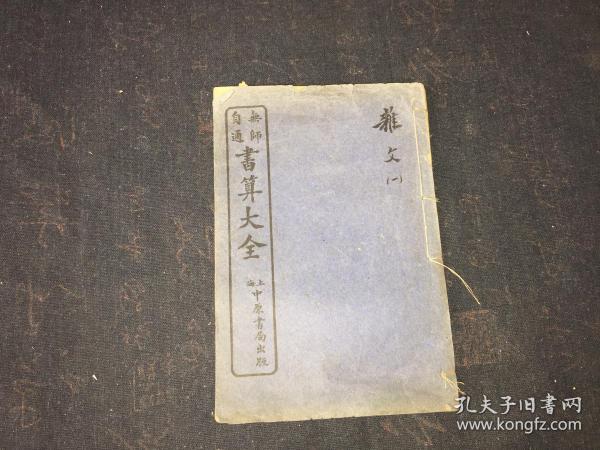 雜文(一)
無師自通
書算大全
上海中原書局出版
孔夫子旧书网
www.kongfz.com